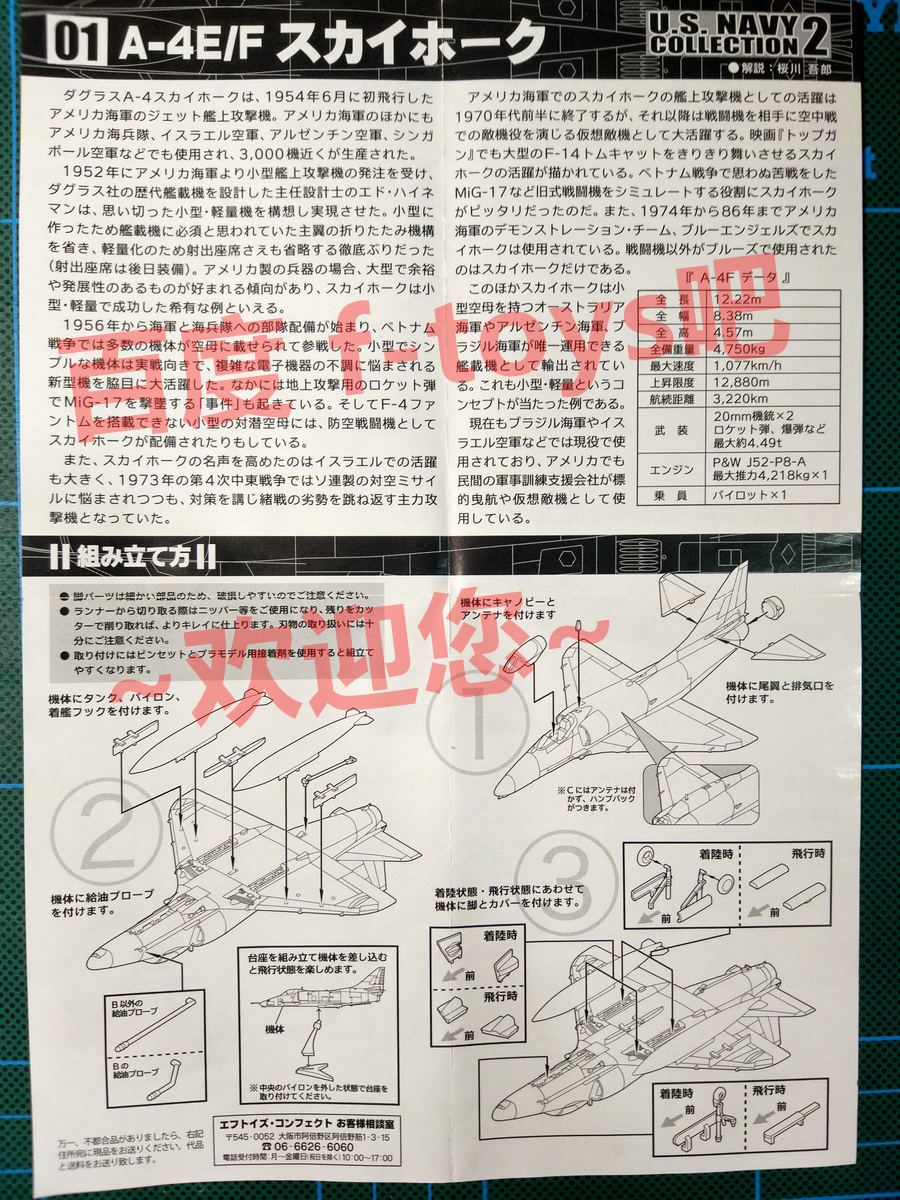 01 A-4E/F スカイホーク
U.S. NAVY
COLLECTION 2
●解説：桜川 吾郎
ダグラスA-4スカイホークは、1954年6月に初飛行した
アメリカ海軍のジェット艦上攻撃機。アメリカ海軍のほかにも
アメリカ海兵隊、イスラエル空軍、アルゼンチン空軍、シンガ
ポール空軍などでも使用され、3,000機近くが生産された。
1952年にアメリカ海軍より小型艦上攻撃機の発注を受け、
ダグラス社の歴代艦載機を設計した主任設計士のエド・ハイネ
マンは、思い切った小型・軽量機を構想し実現させた。小型に
作ったため艦載機に必須と思われていた主翼の折りたたみ機構
を省き、軽量化のため射出座席さえも省略する徹底ぶりだった
(射出座席は後日装備)。アメリカ製の兵器の場合、大型で余裕
や発展性のあるものが好まれる傾向があり、スカイホークは小
型・軽量で成功した希有な例といえる。
1956年から海軍と海兵隊への部隊配備が始まり、ベトナム
戦争では多数の機体が空母に載せられて参戦した。小型でシン
プルな機体は実戦向きで、複雑な電子機器の不調に悩まされる
新型機を脇目に大活躍した。なかには地上攻撃用のロケット弾
でMiG-17を撃墜する「事件」も起きている。そしてF-4ファ
ントムを搭載できない小型の対潜空母には、防空戦闘機として
スカイホークが配備されたりもしている。
また、スカイホークの名声を高めたのはイスラエルでの活躍
も大きく、1973年の第4次中東戦争ではソ連製の対空ミサイ
ルに悩まされつつも、対策を講じ緒戦の劣勢を跳ね返す主力攻
撃機となっていた。
アメリカ海軍でのスカイホークの艦上攻撃機としての活躍は
1970年代前半に終了するが、それ以降は戦闘機を相手に空中戦
での敵機役を演じる仮想敵機として大活躍する。映画『トップガ
ン』でも大型のF-14トムキャットをきりきり舞いさせるスカイ
ホークの活躍が描かれている。ベトナム戦争で思わぬ苦戦をした
MiG-17など旧式戦闘機をシミュレートする役割にスカイホーク
がピッタリだったのだ。また、1974年から86年までアメリカ
海軍のデモンストレーション・チーム、ブルーエンジェルズでスカ
イホークは使用されている。戦闘機以外がブルーズで使用された
のはスカイホークだけである。
このほかスカイホークは小
型空母を持つオーストラリア
海軍やアルゼンチン海軍、ブ
ラジル海軍が唯一運用できる
艦載機として輸出されてい
る。これも小型・軽量というコ
ンセプトが当たった例である。
現在もブラジル海軍やイス
ラエル空軍などでは現役で使
用されており、アメリカでも
民間の軍事訓練支援会社が標
的曳航や仮想敵機として使
用している。
『 A-4F データ 』
全 長 12.22m
全 幅 8.38m
全 高 4.57m
全備重量 4,750kg
最大速度 1,077km/h
上昇限度 12,880m
航続距離 3,220km
武 装 20mm機銃×2
ロケット弾、爆弾など
最大約4.49t
エンジン P&W J52-P8-A
最大推力4,218kg×1
乗 員 パイロット×1
百度 f-toys吧
~欢迎您~
組み立て方
● 脚パーツは細かい部品のため、破損しやすいのでご注意ください。
● ランナーから切り取る際はニッパー等をご使用になり、残りをカッ
ターで削り取れば、よりキレイに仕上ります。刃物の取り扱いには十
分にご注意ください。
● 取り付けにはピンセットとプラモデル用接着剤を使用すると組立て
やすくなります。
①
機体にキャノピーと
アンテナを付けます
機体に尾翼と排気口を
付けます。
※Cにはアンテナは付
かず、ハンプバック
がつきます。
②
機体にタンク、パイロン、
着艦フックを付けます。
機体に給油プローブ
を付けます。
B以外の
給油プローブ
Bの
給油プローブ
台座を組み立て機体を差し込む
と飛行状態を楽しめます。
機体
※中央のパイロンを外した状態で台座を
取り付けてください。
③
着陸状態・飛行状態にあわせて
機体に脚とカバーを付けます。
着陸時
前
飛行時
前
着陸時
前
飛行時
前
着陸時
前
飛行時
前
万一、不都合品がありましたら、右記
住所宛に現品をお送りください。代品
と送料をお送り致します。
エフトイズ・コンフェクト お客様相談室
〒545-0052 大阪市阿倍野区阿倍野筋1-3-15
☎ 06-6626-6060
電話受付時間：月～金曜日(祝日を除く)10:00～17:00